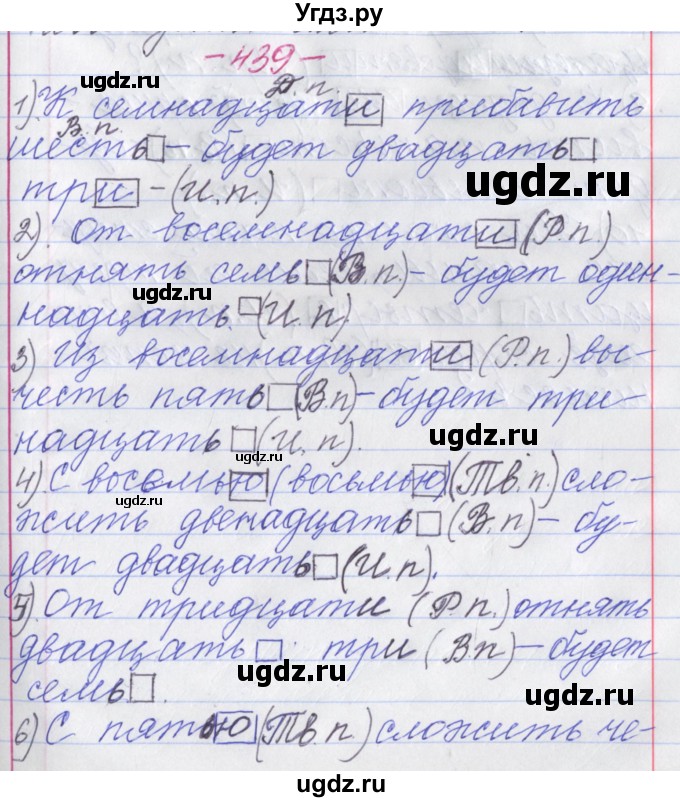 Угдз.ру
-439-
Д. п.
1). К семнадцати прибавить
В. п.
шесть□ - будет двадцать□
ugdz.ru
три - (И. п.)
ugdz.ru
2). От восемнадцати (Р. п.)
отнять семь□ (В. п.) - будет один-
ugdz.ru
надцать □ (И. п)
3) Из восемнадцати (Р. п.) вы-
честь пять □ (В. п) - будет три-
надцать □ (И. п).
ugdz.ru
4). С восемью (восьмью) (Тв. п.) сло-
ugdz.ru
жить двенадцать □ (В. п) - бу-
дет двадцать □ (И. п).
ugdz.ru
5). От тридцати (Р. п.) отнять
двадцать □ три (В п) - будет
ugdz.ru
ugdz.ru
семь □.
6) С пятью (Тв. п.) сложить че-
ugdz.ru
ugdz.ru
ugdz.ru